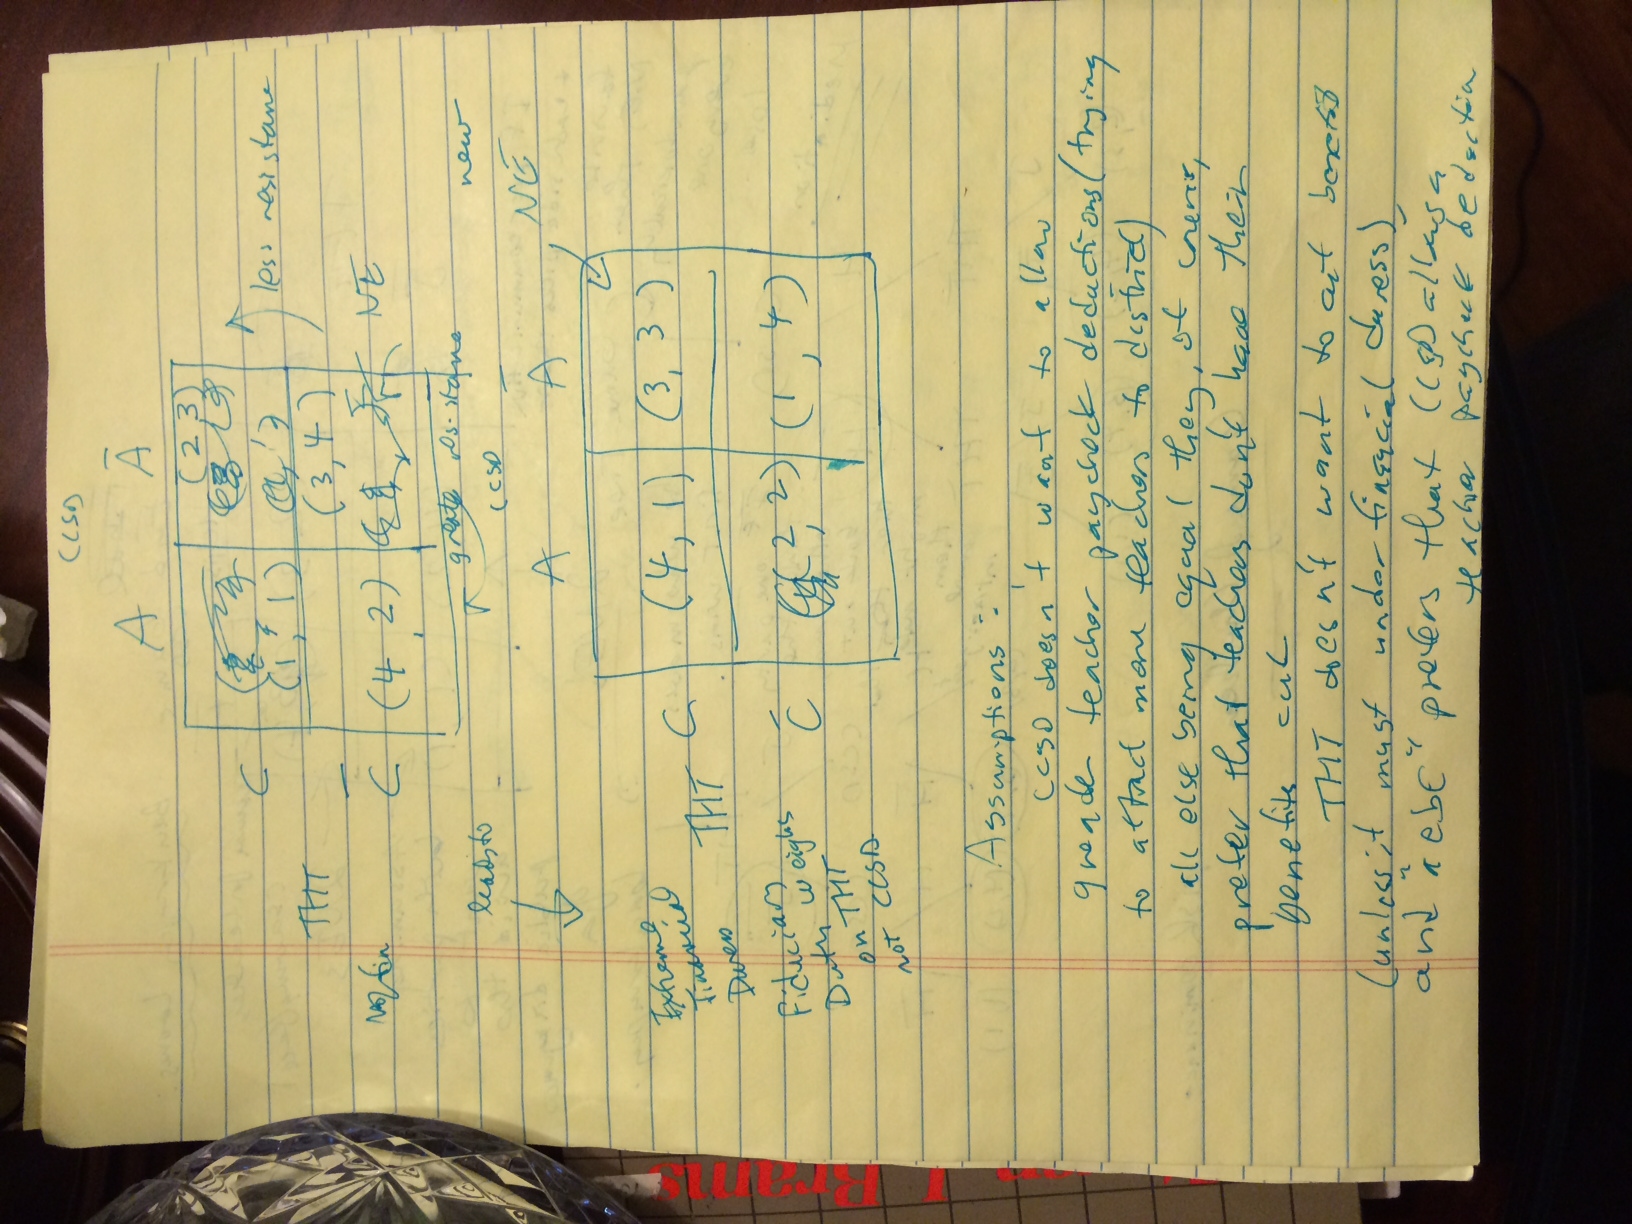 CCSD
A Ā
C (1, 1) (2, 3)
less resistance
THT
(3, 4)
C̄ (4, 2) NE
greater resistance
leads to CCSD new
A Ā NE
Extreme
Financial
Duress
THT C (4, 1) (3, 3)
Fiduciary
Duty weighs
on THT
not CCSD
C̄ (2, 2) (1, 4)
Assumptions:
CCSD doesn't want to allow
greater teacher paycheck deductions (trying
to attract more teachers to district)
all else being equal they, of course,
prefer that teachers don't have their
benefits cut
THT doesn't want to cut benefits
(unless it must under financial duress)
and "aebe" prefers that CCSD allows a
teacher paycheck deduction
n J Brams